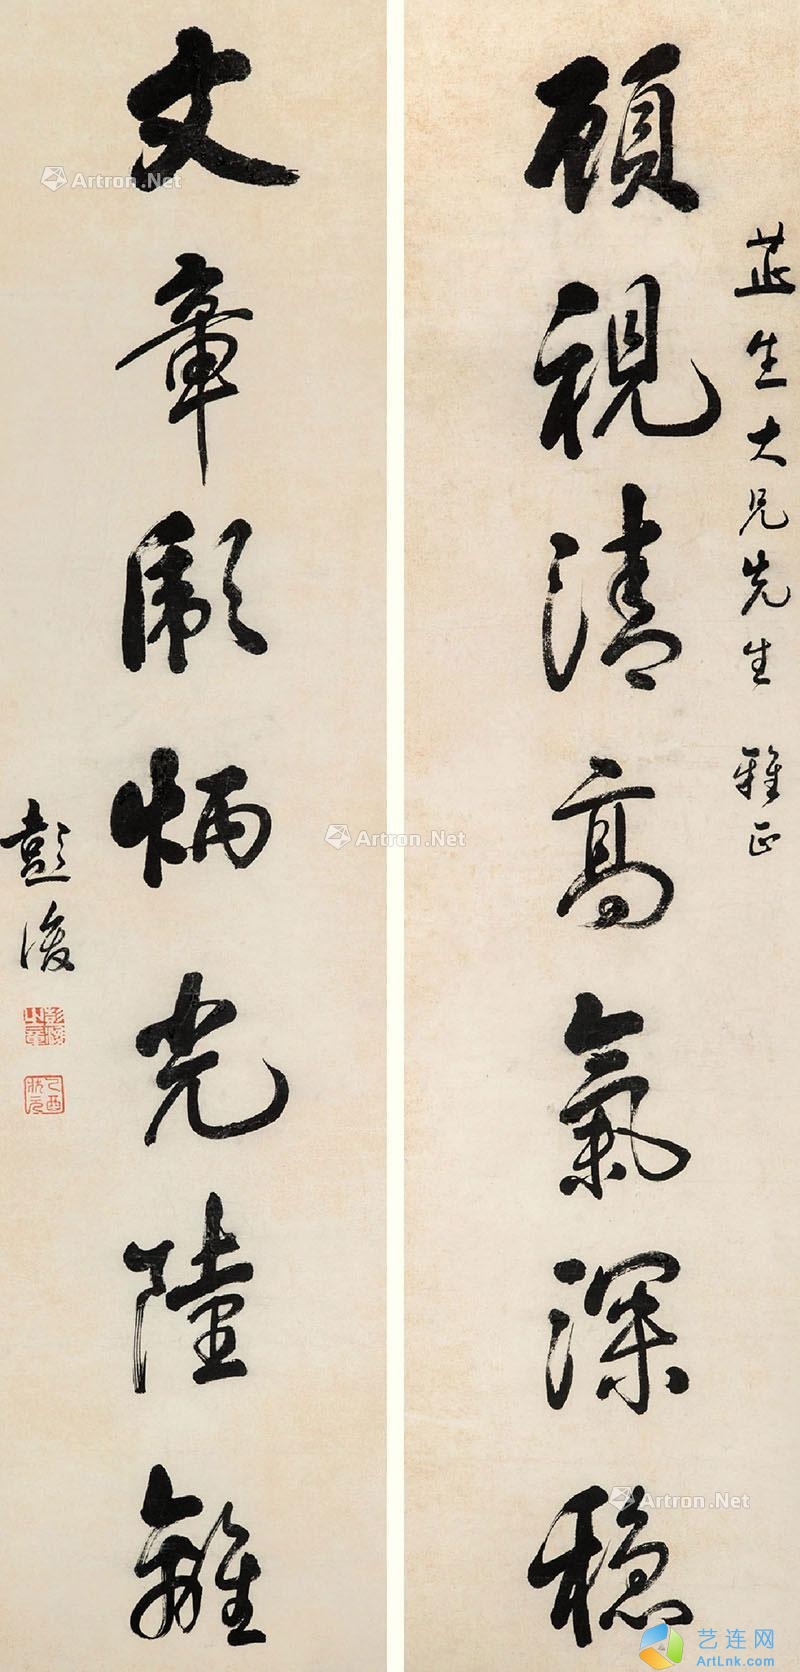 芷生大兄先生 雅正
顧視清高氣深穩
文章彪炳光陸離
彭浚
彭浚之章
乙丑狀元
Artron.Net
Artron.Net
Artron.Net
艺连网
ArtLnk.com